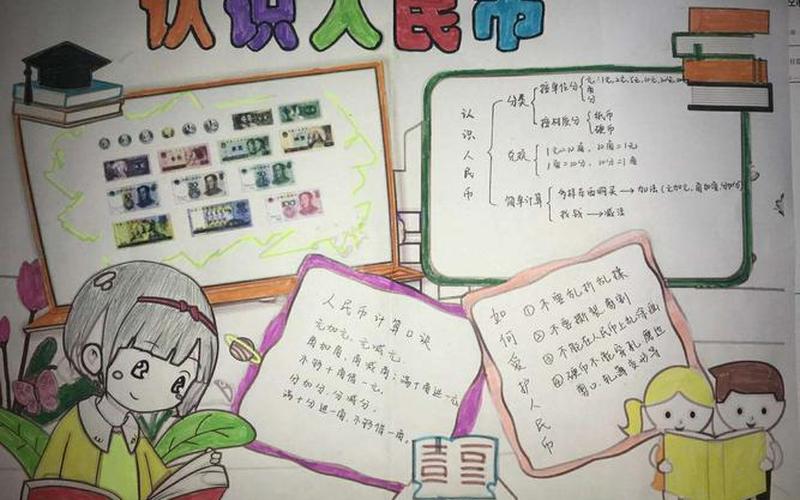 认识人民币
认识人民币
分类
按单位分
元:1元,2元,5元,10元,20元
角
分
按材质分
纸币
硬币
兑换
1元=10角, 10角=1元
1角=10分, 10分=1角
简单计算
多样东西购买→加法(元加元,角加角,分加分)
找钱→减法
人民币计算口诀
元加元,元减元,
角加角,角减角;满十角进一元
不够十角借一元,
分加分,分减分,
满十分进一角,不够借一角。
如何爱护人民币
①不要乱折乱揉
②不要撕裂剪割
③不能在人民币上乱涂画
④硬币不能穿孔磨边
剪口